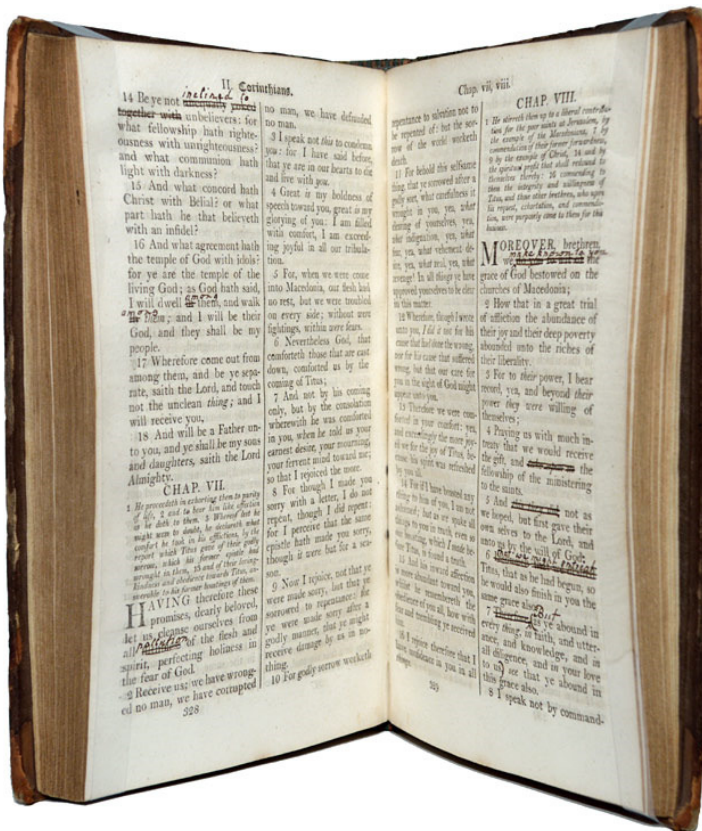 II. Corinthians.
inclined to
14 Be ye not unequally yoked
together with unbelievers: for
what fellowship hath righte-
ousness with unrighteousness?
and what communion hath
light with darkness?
15 And what concord hath
Christ with Belial? or what
part hath he that believeth
with an infidel?
16 And what agreement hath
the temple of God with idols?
for ye are the temple of the
living God; as God hath said,
among
I will dwell in them, and walk
among
in them; and I will be their
God, and they shall be my
people.
17 Wherefore come out from
among them, and be ye sepa-
rate, saith the Lord, and touch
not the unclean thing; and I
will receive you,
18 And will be a Father un-
to you, and ye shall be my sons
and daughters, saith the Lord
Almighty.
CHAP. VII.
1 He proceedeth in exhorting them to purity
of life, 2 and to bear him like affection
as he doth to them. 3 Whereof lest he
might seem to doubt, he declareth what
comfort he took in his afflictions, by the
report which Titus gave of their godly
sorrow, which his former epistle had
wrought in them, 13 and of their loving-
kindness and obedience towards Titus, an-
swerable to his former boastings of them.
HAVING therefore these
promises, dearly beloved,
let us cleanse ourselves from
pollution
all of the flesh and
spirit, perfecting holiness in
the fear of God.
2 Receive us; we have wrong-
ed no man, we have corrupted
328
no man, we have defrauded
no man.
3 I speak not this to condemn
you: for I have said before,
that ye are in our hearts to die
and live with you.
4 Great is my boldness of
speech toward you, great is my
glorying of you: I am filled
with comfort, I am exceed-
ing joyful in all our tribula-
tion.
5 For, when we were come
into Macedonia, our flesh had
no rest, but we were troubled
on every side; without were
fightings, within were fears.
6 Nevertheless God, that
comforteth those that are cast
down, comforted us by the
coming of Titus;
7 And not by his coming
only, but by the consolation
wherewith he was comforted
in you, when he told us your
earnest desire, your mourning,
your fervent mind toward me;
so that I rejoiced the more.
8 For though I made you
sorry with a letter, I do not
repent, though I did repent:
for I perceive that the same
epistle hath made you sorry,
though it were but for a sea-
son.
9 Now I rejoice, not that ye
were made sorry, but that ye
sorrowed to repentance: for
ye were made sorry after a
godly manner, that ye might
receive damage by us in no-
thing.
10 For godly sorrow worketh
Chap. vii, viii.
repentance to salvation not to
be repented of: but the sor-
row of the world worketh
death.
11 For behold this selfsame
thing, that ye sorrowed after a
godly sort, what carefulness it
wrought in you, yea, what
clearing of yourselves, yea,
what indignation, yea, what
fear, yea, what vehement de-
sire, yea, what zeal, yea, what
revenge! In all things ye have
approved yourselves to be clear
in this matter.
12 Wherefore, though I wrote
unto you, I did it not for his
cause that had done the wrong,
nor for his cause that suffered
wrong, but that our care for
you in the sight of God might
appear unto you.
13 Therefore we were com-
forted in your comfort: yea,
and exceedingly the more joy-
ed we for the joy of Titus, be-
cause his spirit was refreshed
by you all.
14 For if I have boasted any
thing to him of you, I am not
ashamed; but as we spake all
things to you in truth, even so
our boasting, which I made be-
fore Titus, is found a truth.
15 And his inward affection
is more abundant toward you,
whilst he remembereth the
obedience of you all, how with
fear and trembling ye received
him.
16 I rejoice therefore that I
have confidence in you in all
things.
329
CHAP. VIII.
1 He stirreth them up to a liberal contribu-
tion for the poor saints at Jerusalem, by
the example of the Macedonians, 7 by
commendation of their former forwardness,
9 by the example of Christ, 14 and by
the spiritual profit that shall redound to
themselves thereby: 16 commending to
them the integrity and willingness of
Titus, and those other brethren, who upon
his request, exhortation, and commenda-
tion, were purposely come to them for this
business.
MOREOVER, brethren,
make known to you
we the
grace of God bestowed on the
churches of Macedonia;
2 How that in a great trial
of affliction the abundance of
their joy and their deep poverty
abounded unto the riches of
their liberality.
3 For to their power, I bear
record, yea, and beyond their
power they were willing of
themselves;
4 Praying us with much in-
treaty that we would receive
the gift, and the
fellowship of the ministering
to the saints.
5 And not as
we hoped, but first gave their
own selves to the Lord, and
unto us by the will of God.
6
Titus, that as he had begun, so
he would also finish in you the
same grace also.
But
7 as ye abound in
every thing, in faith, and utter-
ance, and knowledge, and in
all diligence, and in your love
to us, see that ye abound in
this grace also.
8 I speak not by command-